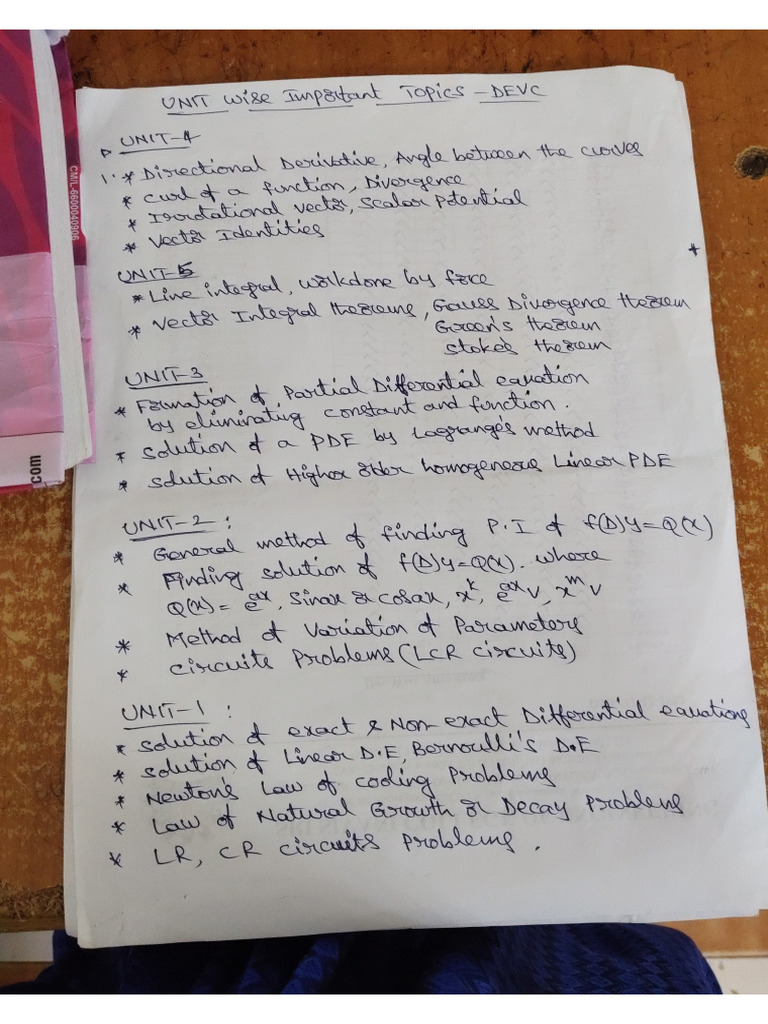 UNIT wise Important Topics - DEVC
UNIT-4
1. * Directional Derivative, Angle between the curves
* curl of a function, Divergence
* Irrotational vector, Scalar Potential
* Vector Identities
UNIT-5
* Line integral, workdone by force
* Vector Integral theorems, Gauss Divergence theorem
Green's theorem
Stoke's theorem
UNIT-3
* Formation of Partial Differential equation
by eliminating constant and function.
* solution of a PDE by Lagrange's method
* solution of Higher order homogeneous Linear PDE
UNIT-2 :
* General method of finding P.I of f(D)y=Q(x)
* Finding solution of f(D)y=Q(x). where
Q(x) = e^ax, sinax or cosax, x^k, e^ax v, x^m v
* Method of Variation of Parameters
* Circuits Problems (LCR circuits)
UNIT-1 :
* solution of exact & Non-exact Differential equations
* solution of Linear D.E, Bernoulli's D.E
* Newton's Law of cooling Problems
* Law of Natural Growth or Decay Problems
* LR, CR circuits Problems.
CM/L-6600040906
.com